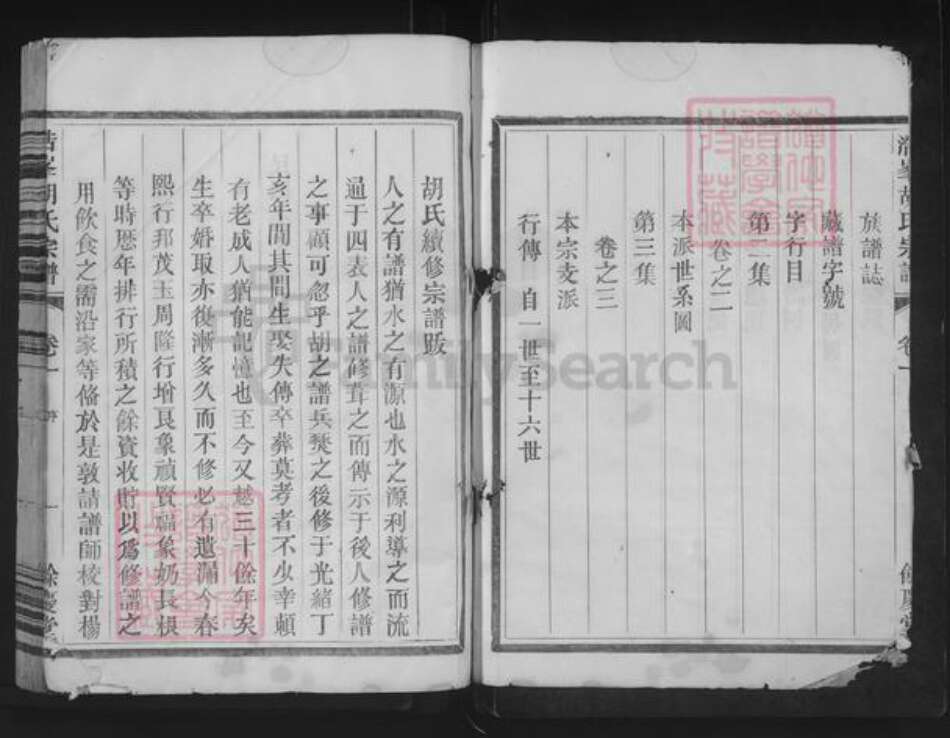 族譜誌
藏譜字號
字行目
第二集
卷之二
本派世系圖
第三集
卷之三
本宗支派
行傳 自一世至十六世
胡氏宗譜 卷一
餘慶堂
胡氏續修宗譜跋
人之有譜猶水之有源也水之源利導之而流
通于四表人之譜修葺之而傳示于後人修譜
之事顧可忽乎胡之譜兵燹之後修于光緒丁
亥年間其間生娶失傳卒葬莫考者不少幸賴
有老成人猶能記憶也至今又越三十餘年矣
生卒婚取亦復漸多久而不修必有遺漏今春
熙行邦茂玉周隆行增艮象禎賢福象奶長根
等時歷年排行所積之餘資收貯以爲修譜之
用飲食之需沿家等俻於是敦請譜師校對楊
胡氏宗譜 卷一
餘慶堂
FamilySearch